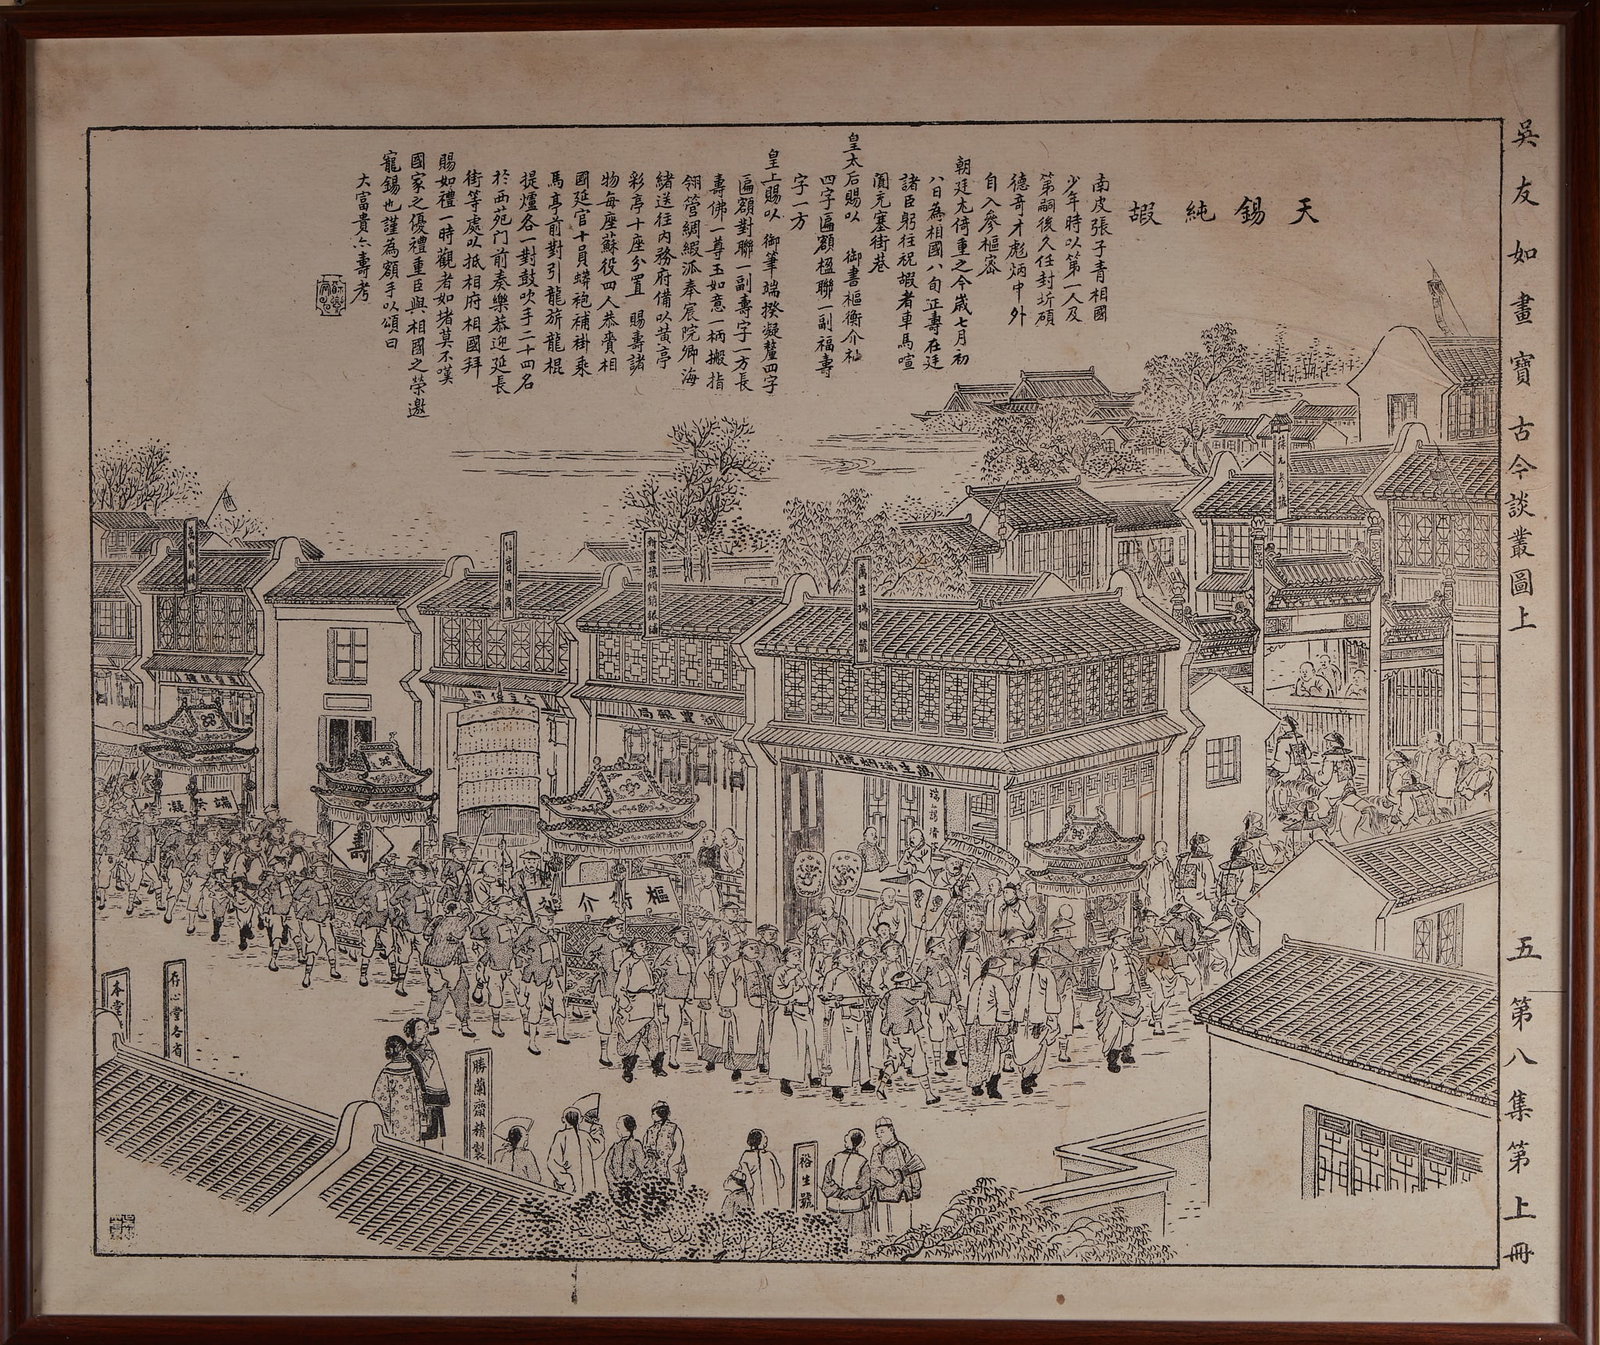 吳友如畫寶古今談叢圖上
五第八集第上冊
天錫純嘏
南皮張子青相國
少年時以第一人及
第嗣後久任封圻碩
德奇才彪炳中外
自入參樞密
朝廷尤倚重之今歲七月初
八日為相國八旬正壽在廷
諸臣躬往祝嘏者車馬喧
闐充塞街巷
皇太后賜以 御書樞衡介祉
四字匾額楹聯一副福壽
字一方
皇上賜以 御筆端揆凝釐四字
匾額對聯一副壽字一方長
壽佛一尊玉如意一柄搬指
翎管綢緞派奉宸院卿海
緒送往內務府備以黃亭
彩亭十座分置 賜壽諸
物每座蘇役四人恭賫相
國延官十員蟒袍補褂乘
馬亭前對引龍旂龍棍
提爐各一對鼓吹手二十四名
於西苑門前奏樂恭迎延長
街等處以抵相府相國拜
賜如禮一時觀者如堵莫不嘆
國家之優禮重臣與相國之榮邀
寵錫也謹為額手以頌曰
大富貴亦壽考
萬生瑞烟號
新豐銀局
端揆凝
壽
樞衡介
存心堂各省
本堂
勝蘭齋精製
裕生號